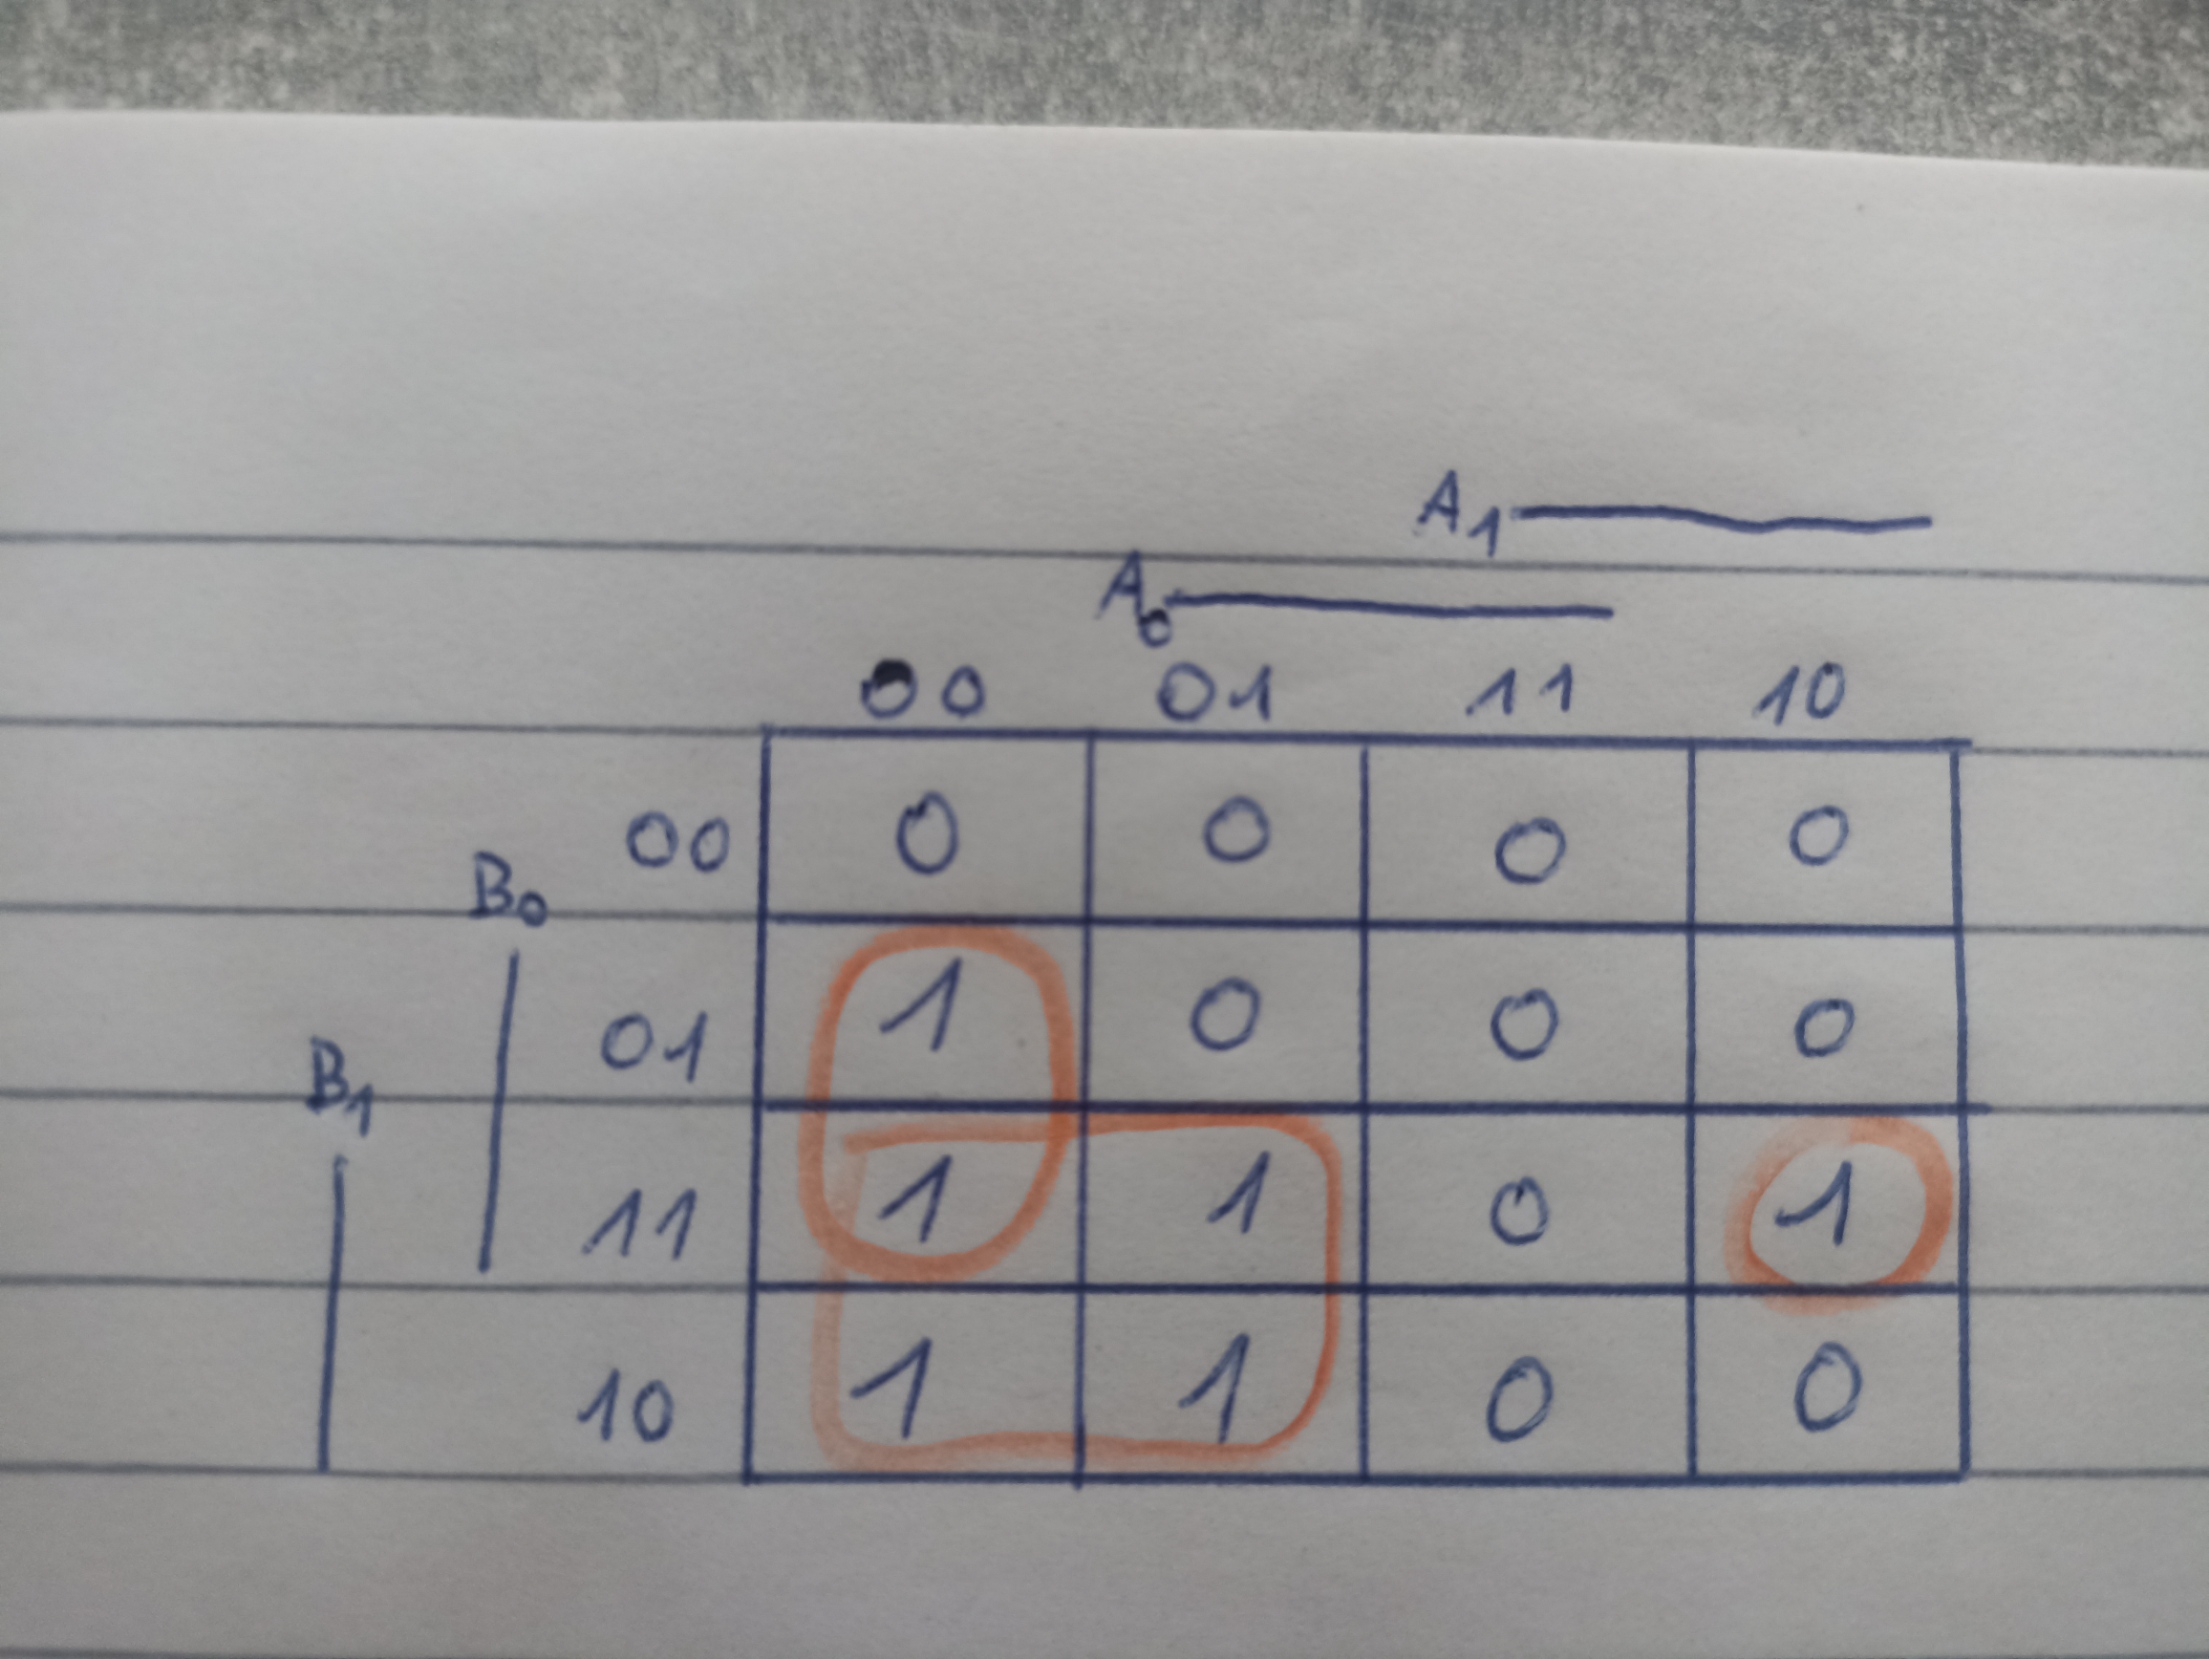 A₁
A₀
00 01 11 10
00 0 0 0 0
B₀
01 1 0 0 0
B₁
11 1 1 0 1
10 1 1 0 0